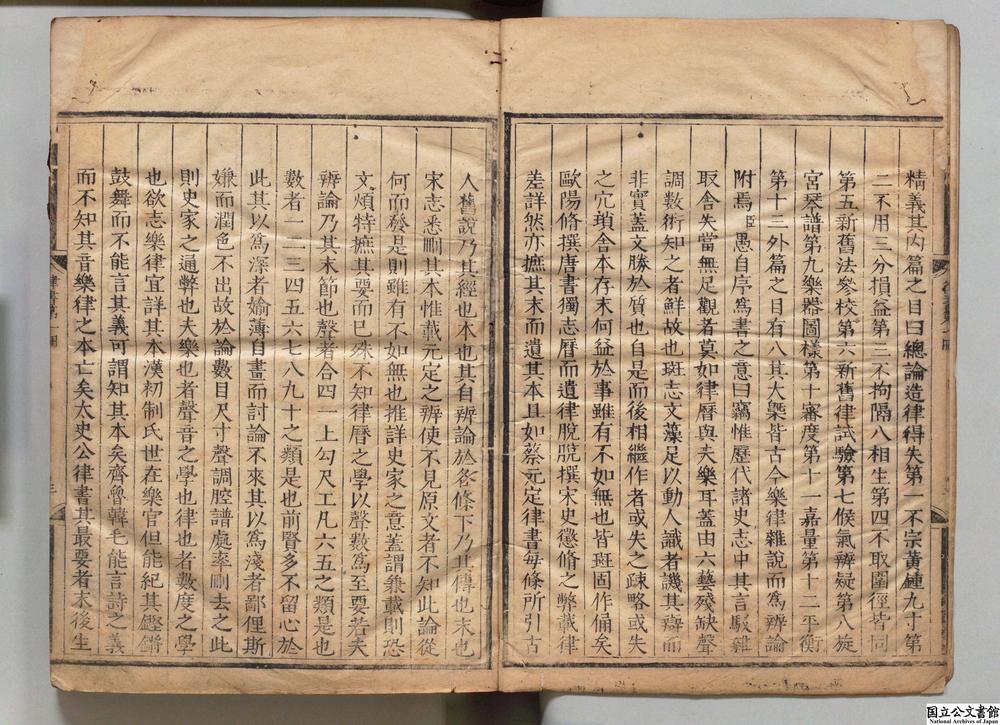 精義其內篇之目曰緫論造律得失第一不宗黃鍾九寸第
二不用三分損益第三不拘隔八相生第四不取圍徑皆同
第五新舊法參校第六新舊律試驗第七候氣辨疑第八旋
宮琴譜第九樂器圖樣第十審度第十一嘉量第十二平衡
第十三外篇之目有八其大槩皆古今樂律雜說而爲辨論
附焉臣愚自序爲書之意曰竊惟歷代諸史志中其言駁雜
取舍失當無足觀者莫如律曆與夫樂耳蓋由六藝殘缺聲
調數術知之者鮮故也班志文藻足以動人識者譏其辭而
非實蓋文勝於質也自是而後相繼作者或失之疎略或失
之冗瑣舍本存末何益於事雖有不如無也皆班固作俑矣
歐陽脩撰唐書獨志曆而遺律脫脫撰宋史懲脩之弊載律
差詳然亦摭其末而遺其本且如蔡元定律書每條所引古
人舊說乃其經也本也其自辨論於各條下乃其傳也末也
宋志悉刪其本惟載元定之辨使不見原文者不知此論從
何而發是則雖有不如無也推詳史家之意蓋謂兼載則恐
文煩特摭其要而已殊不知律曆之學以聲數爲至要若夫
辨論乃其末節也聲者合四一上勾尺工凡六五之類是也
數者一二三四五六七八九十之類是也前賢多不留心於
此其以爲深者婾薄自畫而討論不來其以爲淺者鄙俚斯
嫌而潤色不出故於論數目尺寸聲調腔譜處率刪去之此
則史家之通弊也夫樂也者聲音之學也律也者數度之學
也欲志樂律宜詳其本漢初制氏世在樂官但能紀其鏗鏘
鼓舞而不能言其義可謂知其本矣齊魯韓毛能言詩之義
而不知其音樂律之本亡矣太史公律書其最要者末後生
国立公文書館
National Archives of Japan